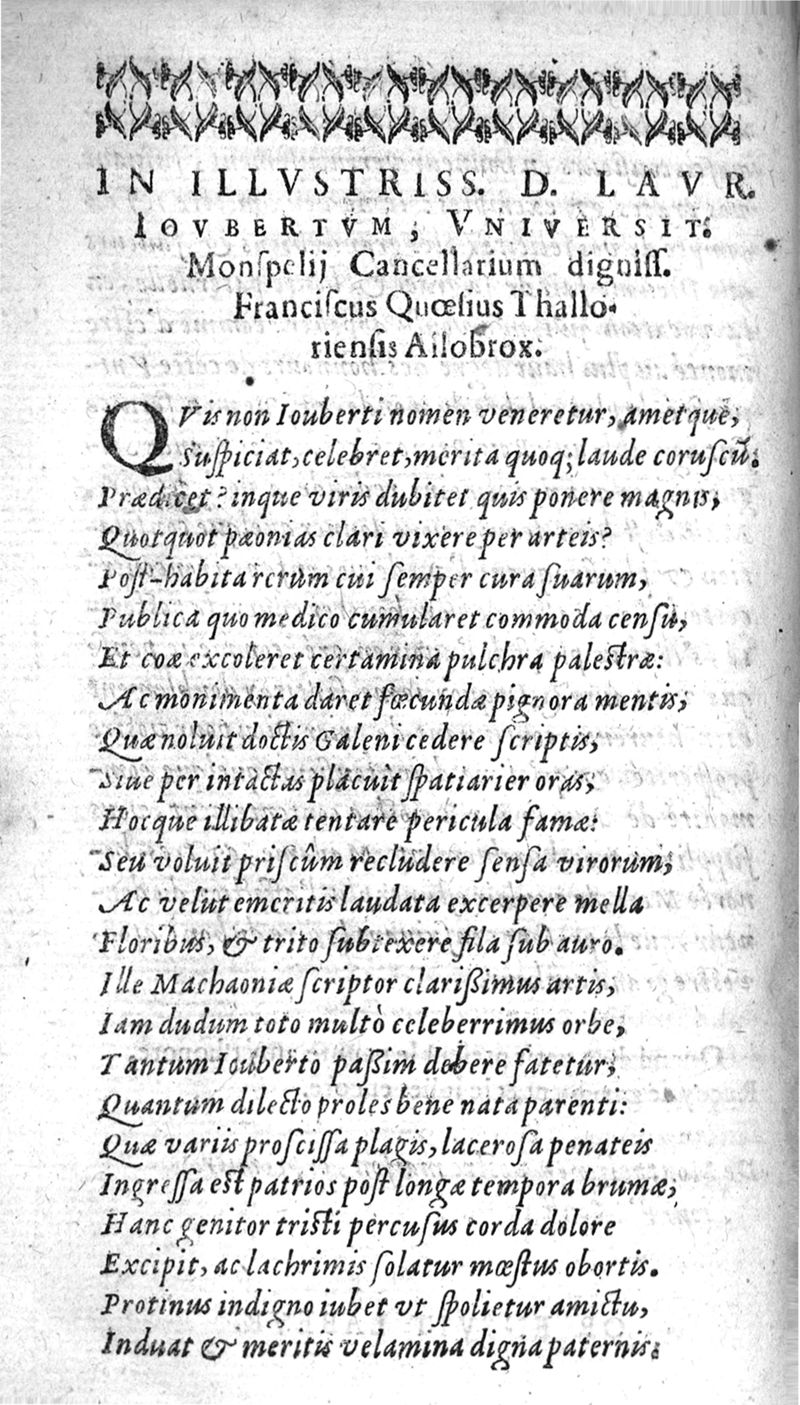 IN ILLVSTRISS. D. LAVR.
IOVBERTVM, VNIVERSIT.
Monſpelij Cancellarium digniſſ.
Franciſcus Quœſius Thallo-
rienſis Allobrox.
QVis non Iouberti nomen veneretur, ametque,
Suſpiciat, celebret, merita quoq; laude coruſcũ.
Prædicet? inque viris dubitet quis ponere magnis,
Quotquot pæonias clari vixere per arteis?
Poſt-habita rerum cui ſemper cura ſuarum,
Publica quo medico cumularet commoda cenſu,
Et coæ excoleret certamina pulchra palestræ:
Ac monimenta daret fœcundæ pignora mentis;
Quæ noluit doctis Galeni cedere ſcriptis,
Siue per intactas placuit ſpatiarier oras,
Hocque illibatæ tentare pericula famæ:
Seu voluit priſcûm recludere ſenſa virorum,
Ac velut emeritis laudata excerpere mella
Floribus, & trito ſubtexere fila ſub auro.
Ille Machaoniæ ſcriptor clariſsimus artis,
Iam dudum toto multò celeberrimus orbe,
Tantum Iouberto paſsim debere fatetur;
Quantum dilecto proles bene nata parenti:
Quæ variis proſciſſa plagis, laceroſa penateis
Ingreſſa est patrios poſt longæ tempora brumæ,
Hanc genitor tristi percuſus corda dolore
Excipit, ac lachrimis ſolatur mœſtus obortis.
Protinus indigno iubet vt ſpolietur amictu,
Induat & meritis velamina digna paternis.